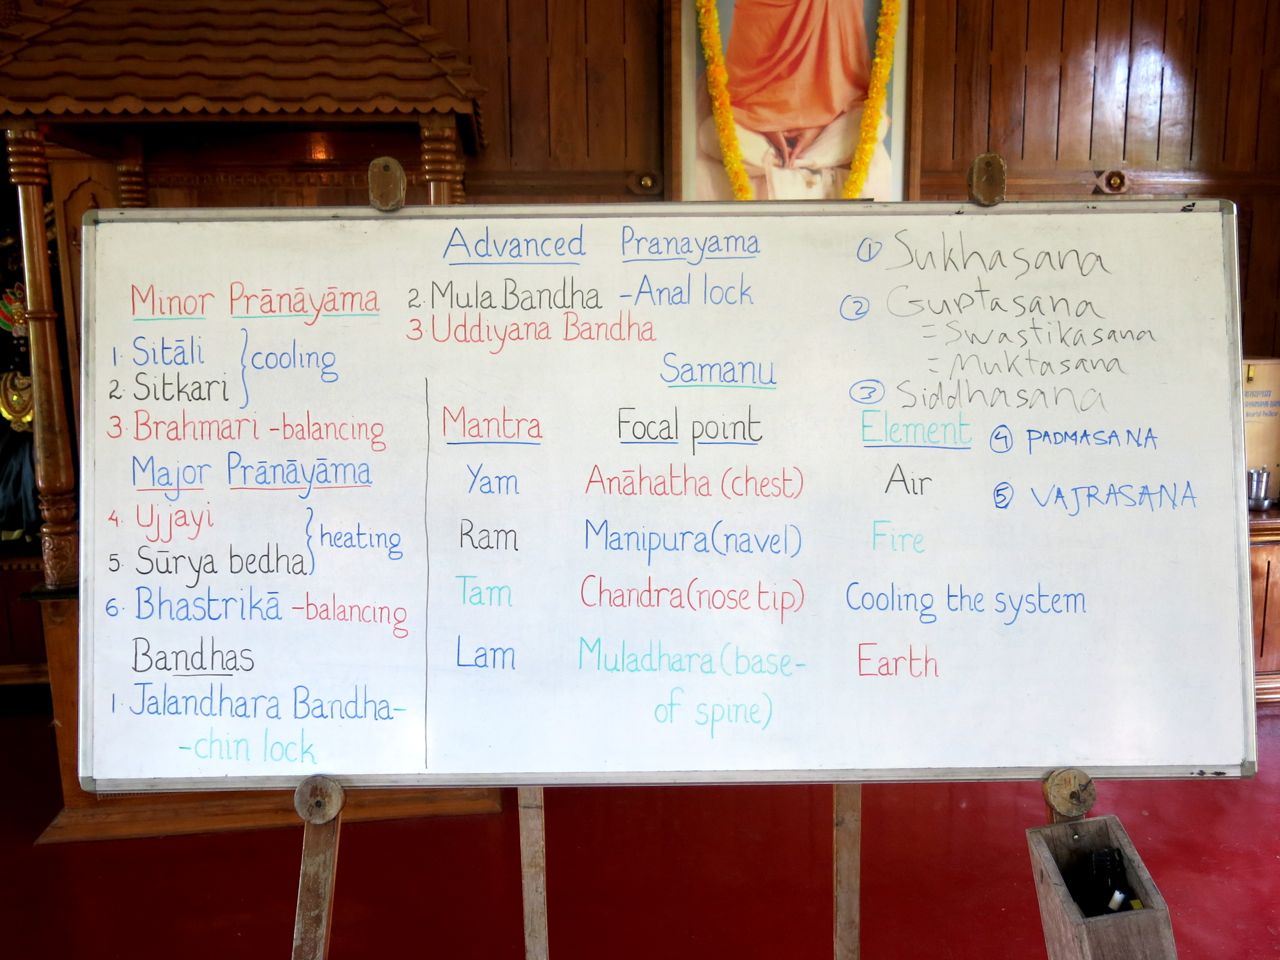 Advanced Pranayama
Minor Prānāyāma
1. Sitāli
2. Sitkari
} cooling
3. Brahmari - balancing
Major Prānāyāma
4. Ujjayi
5. Sūrya bedha
} heating
6. Bhastrikā - balancing
Bandhas
1. Jalandhara Bandha-
-chin lock
2. Mula Bandha - Anal lock
3. Uddiyana Bandha
Samanu
Mantra Focal point Element
Yam Anāhatha (chest) Air
Ram Manipura (navel) Fire
Tam Chandra (nose tip) Cooling the system
Lam Muladhara (base- Earth
of spine)
① Sukhasana
② Guptasana
= Swastikasana
= Muktasana
③ Siddhasana
④ PADMASANA
⑤ VAJRASANA